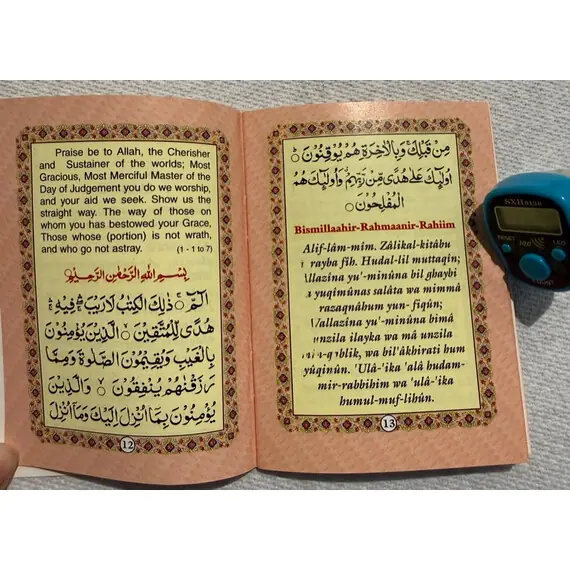 Praise be to Allah, the Cherisher
and Sustainer of the worlds; Most
Gracious, Most Merciful Master of the
Day of Judgement you do we worship,
and your aid we seek. Show us the
straight way. The way of those on
whom you has bestowed your Grace,
Those whose (portion) is not wrath,
and who go not astray. (1 - 1 to 7)
بِسْمِ اللهِ الرَّحْمٰنِ الرَّحِيْمِ
الٓمّٓ ۚ ذٰلِكَ الْكِتٰبُ لَا رَيْبَ ۛ فِيْهِ ۛ
هُدًى لِّلْمُتَّقِيْنَ ۙ الَّذِيْنَ يُؤْمِنُوْنَ
بِالْغَيْبِ وَيُقِيْمُوْنَ الصَّلٰوةَ وَمِمَّا
رَزَقْنٰهُمْ يُنْفِقُوْنَ ۙ وَالَّذِيْنَ
يُؤْمِنُوْنَ بِمَآ اُنْزِلَ اِلَيْكَ وَمَآ اُنْزِلَ
12
مِنْ قَبْلِكَ ۚ وَبِالْاٰخِرَةِ هُمْ يُوْقِنُوْنَ ؕ
اُولٰٓئِكَ عَلٰى هُدًى مِّنْ رَّبِّهِمْ ۗ وَاُولٰٓئِكَ هُمُ
الْمُفْلِحُوْنَ
Bismillaahir-Rahmaanir-Rahiim
Alif-lâm-mim. Zâlikal-kitâbu
rayba fih. Hudal-lil muttaqin;
llazina yu'-minûna bil ghaybi
yuqimûnas salâta wa mimmâ
razaqnâhum yun-fiqûn;
llazina yu'-minûna bimâ
unzila ilayka wa mâ unzila
blik, wa bil'âkhirati hum
yûqinûn. 'Ulâ-'ika 'alâ hudam-
mir-rabbihim wa 'ulâ-'ika
humul-muf-lihûn.
13
SXH5136
RESET
100
LED
COUNT